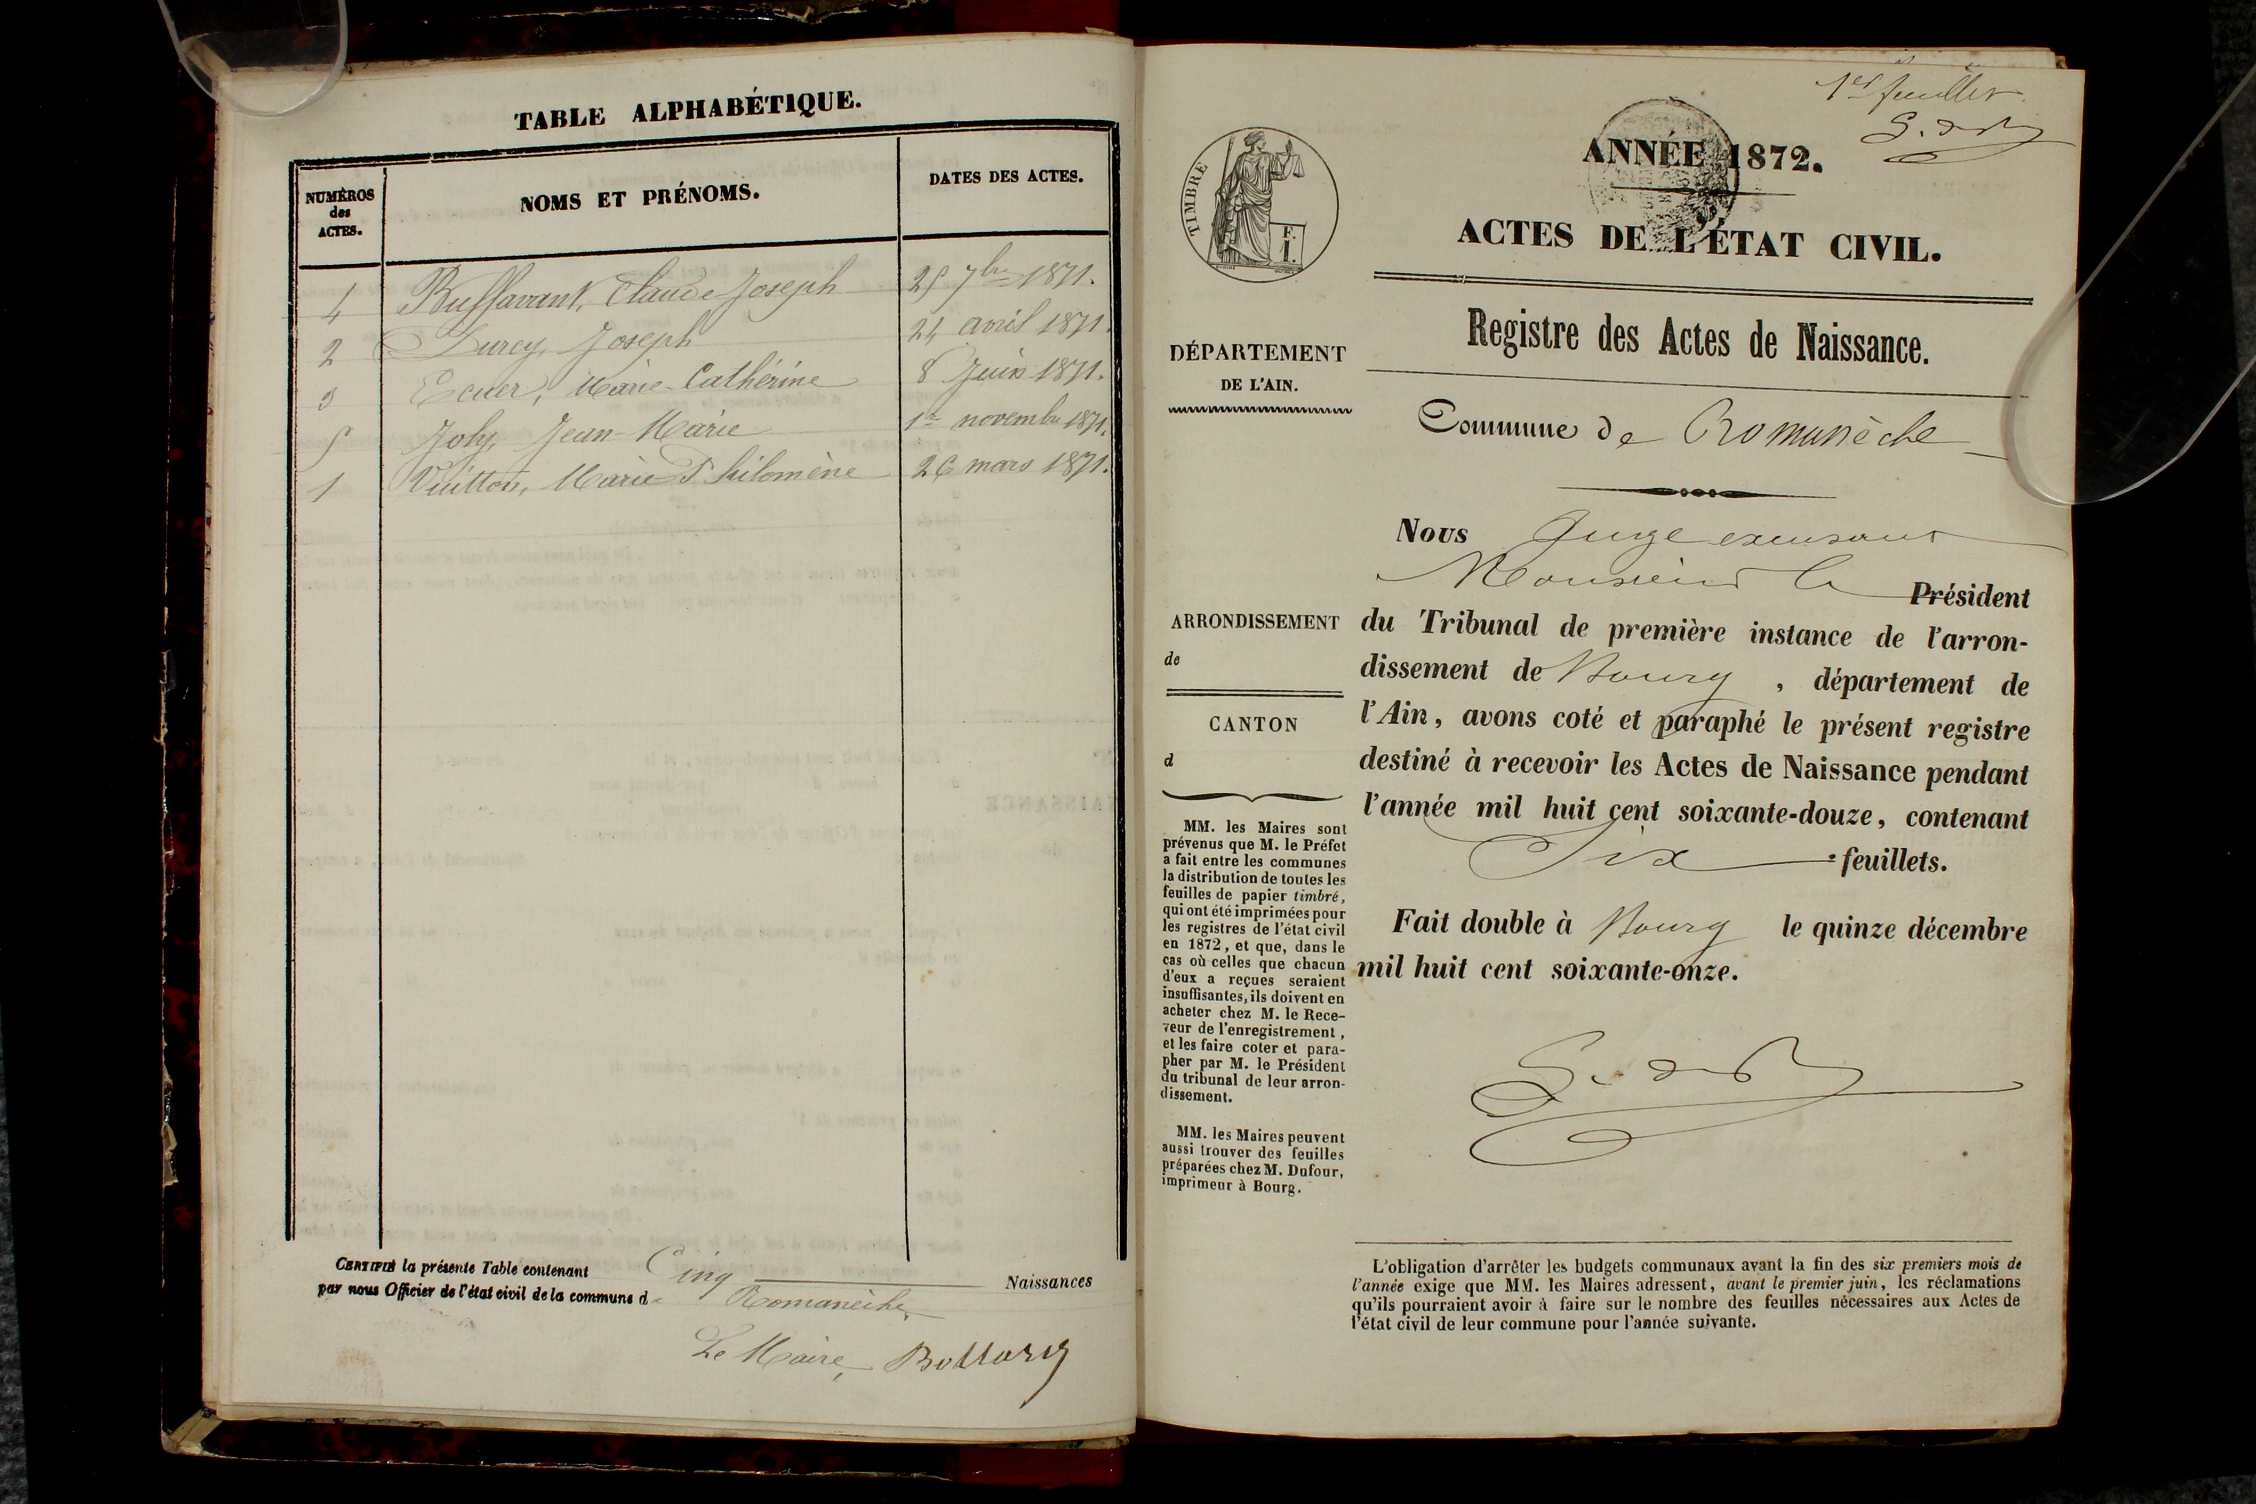 TABLE ALPHABÉTIQUE.
NUMÉROS
des
ACTES.
NOMS ET PRÉNOMS.
DATES DES ACTES.
4 Buffavant, Claude Joseph 25 7bre 1871.
2 Durey, Joseph 24 avril 1871.
3 Ecuer, Marie-Cathérine 8 Juin 1871.
5 Joly, Jean-Marie 1er novembre 1871.
1 Vuitton, Marie Philomène 26 mars 1871.
CERTIFIÉ la présente Table contenant Cinq Naissances
par nous Officier de l'état civil de la commune de Romanèche
Le Maire,
1er feuillet
ANNÉE 1872.
TIMBRE
F.
1.
ACTES DE L'ÉTAT CIVIL.
Registre des Actes de Naissance.
Commune de Romanèche
DÉPARTEMENT
DE L'AIN.
ARRONDISSEMENT
de
CANTON
d
MM. les Maires sont
prévenus que M. le Préfet
a fait entre les communes
la distribution de toutes les
feuilles de papier timbré,
qui ont été imprimées pour
les registres de l'état civil
en 1872, et que, dans le
cas où celles que chacun
d'eux a reçues seraient
insuffisantes, ils doivent en
acheter chez M. le Rece-
veur de l'enregistrement,
et les faire coter et para-
pher par M. le Président
du tribunal de leur arron-
dissement.
MM. les Maires peuvent
aussi trouver des feuilles
préparées chez M. Dufour,
imprimeur à Bourg.
Nous Juge excusant
Monsieur le Président
du Tribunal de première instance de l'arron-
dissement de Bourg, département de
l'Ain, avons coté et paraphé le présent registre
destiné à recevoir les Actes de Naissance pendant
l'année mil huit cent soixante-douze, contenant
Six feuillets.
Fait double à Bourg le quinze décembre
mil huit cent soixante-onze.
L'obligation d'arrêter les budgets communaux avant la fin des six premiers mois de
l'année exige que MM. les Maires adressent, avant le premier juin, les réclamations
qu'ils pourraient avoir à faire sur le nombre des feuilles nécessaires aux Actes de
l'état civil de leur commune pour l'année suivante.